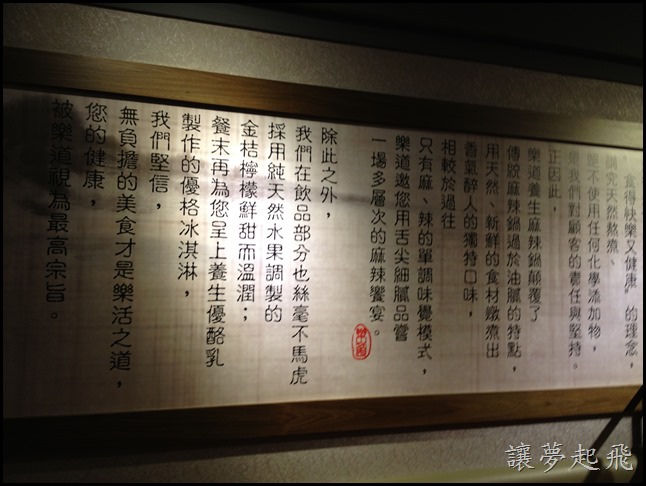 "食得快樂又健康"的理念，
究天然熬煮、
不使用任何化學添加物，
我們對顧客的責任與堅持。
正因此，
樂道養生麻辣鍋顛覆了
傳統麻辣鍋過於油膩的特點，
用天然、新鮮的食材燉煮出
香氣醉人的獨特口味，
相較於過往
只有麻、辣的單調味覺模式，
樂道邀您用舌尖細膩品嘗
一場多層次的麻辣饗宴。
除此之外，
我們在飲品部分也絲毫不馬虎
採用純天然水果調製的
金桔檸檬鮮甜而溫潤；
餐末再為您呈上養生優酪乳
製作的優格冰淇淋，
我們堅信，
無負擔的美食才是樂活之道，
您的健康，
被樂道視為最高宗旨。
讓夢起飛